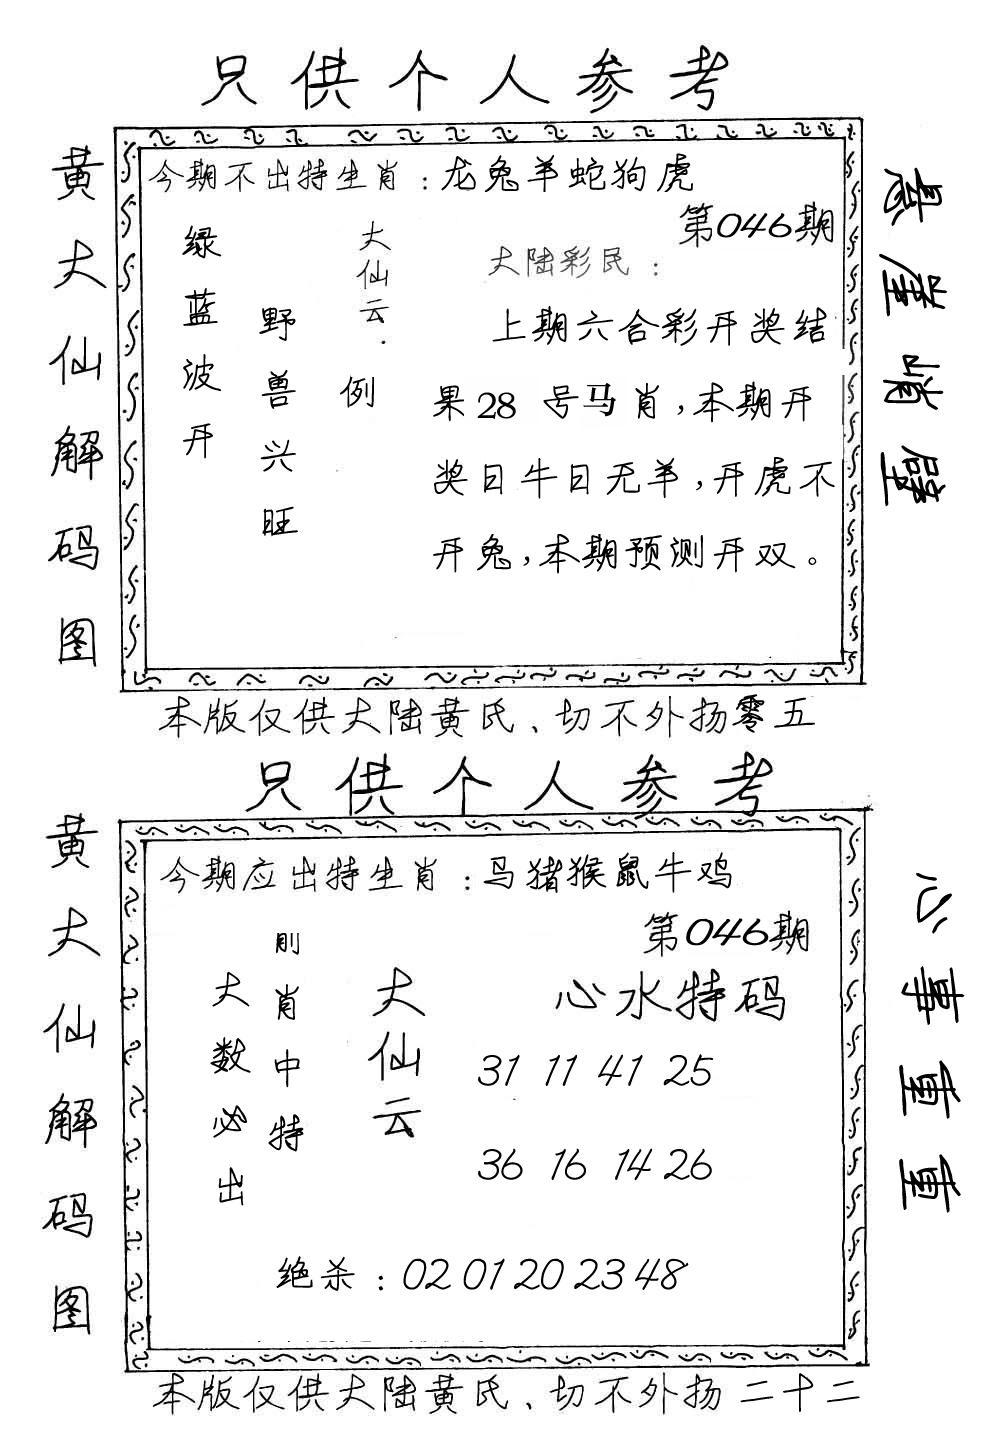 只供个人参考
黄大仙解码图
今期不出特生肖：龙兔羊蛇狗虎
第046期
大仙云.
例
野兽兴旺
绿蓝波开
大陆彩民：
上期六合彩开奖结
果28 号马肖，本期开
奖日牛日无羊，开虎不
开兔，本期预测开双。
悬崖峭壁
本版仅供大陆黄氏、切不外扬零五
只供个人参考
黄大仙解码图
今期应出特生肖：马猪猴鼠牛鸡
第046期
大仙云
刚肖中特
大数必出
心水特码
31 11 41 25
36 16 14 26
绝杀：02 01 20 23 48
心事重重
本版仅供大陆黄氏、切不外扬二十二